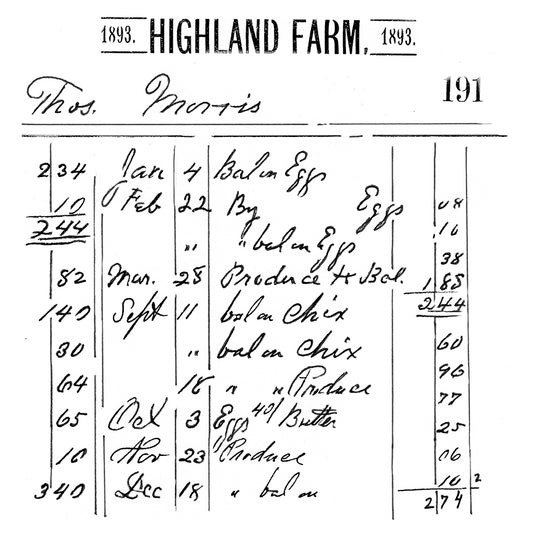 1893. HIGHLAND FARM, 1893.
Thos. Morris 191
2 34 Jan 4 Bal on Eggs
10 Feb 22 By Eggs 08
2 44 " " bal on Eggs 10
38
82 Mar. 28 Produce to Bal. 1 88
1 40 Sept 11 bal on Chix 2 44
30 " bal on Chix 60
64 18 " " Produce 90
77
65 Oct 3 Eggs 40/ Butter 25
10 Nov 23 " Produce 06
3 40 Dec 18 " bal on 10 2
2 74